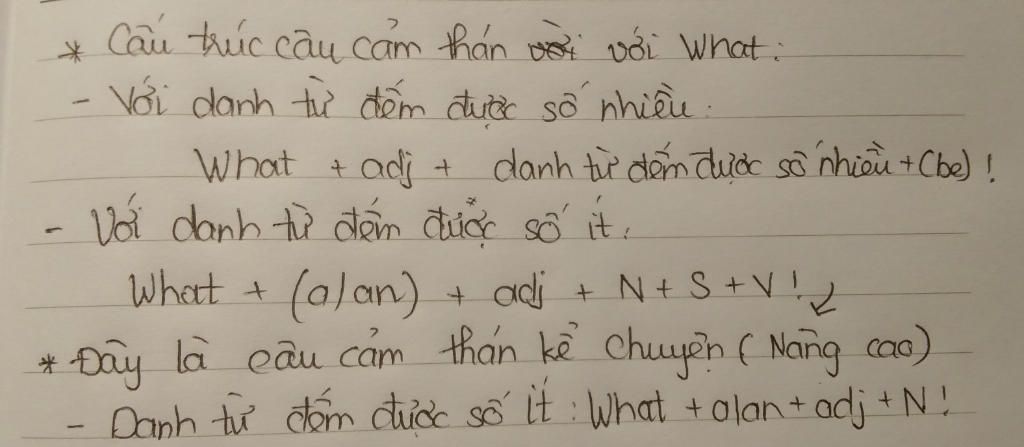 * Cấu trúc câu cảm thán với với What:
- Với danh từ đếm được số nhiều:
What + adj + danh từ đếm được số nhiều + (be)!
- Với danh từ đếm được số ít:
What + (a/an) + adj + N + S + V!
* Đây là câu cảm thán kể chuyện (Nâng cao)
- Danh từ đếm được số ít: What + a/an + adj + N!